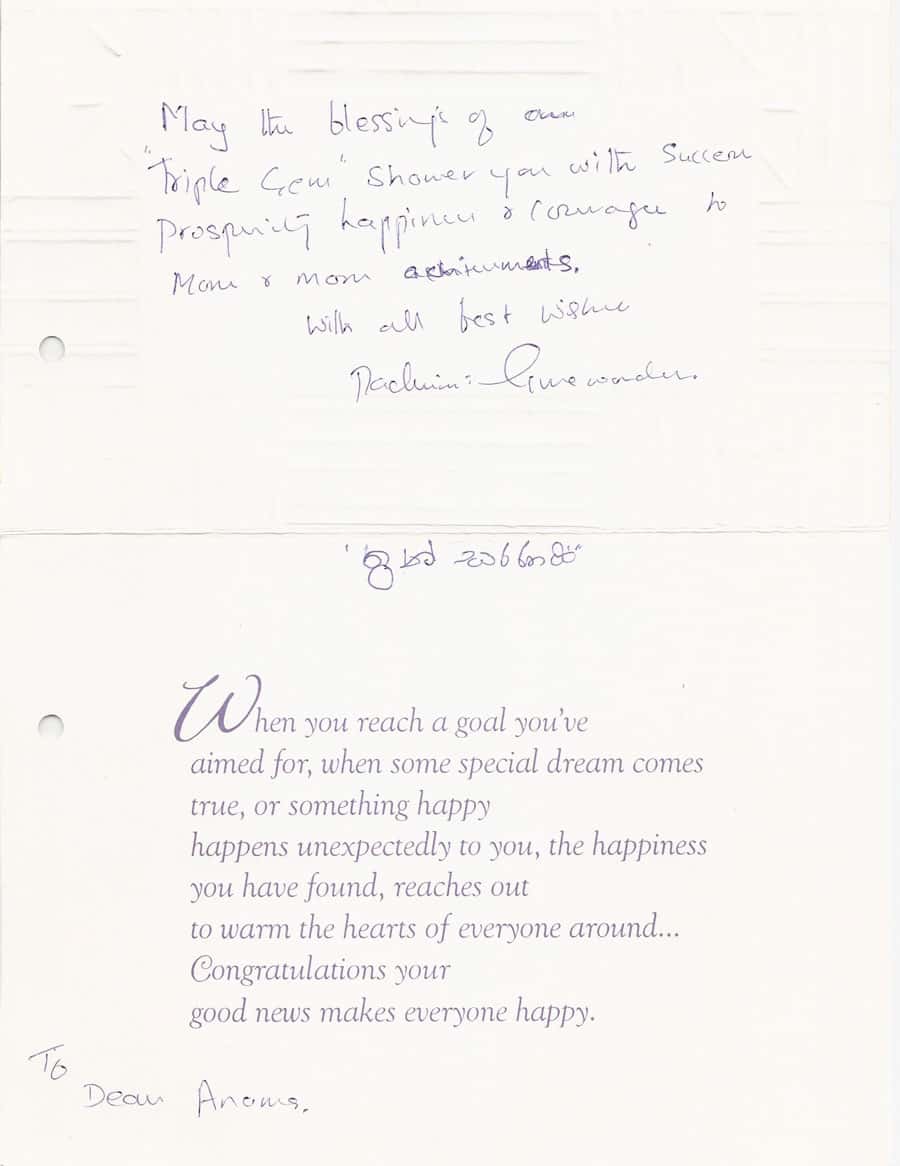 May the blessings of our
"Triple Gem" Shower you with Success
Prosperity happiness & Courage to
More & more achievements.
With all best wishes
"සුබ පැතුම්"
When you reach a goal you've
aimed for, when some special dream comes
true, or something happy
happens unexpectedly to you, the happiness
you have found, reaches out
to warm the hearts of everyone around...
Congratulations your
good news makes everyone happy.
To
Dear Anoma.